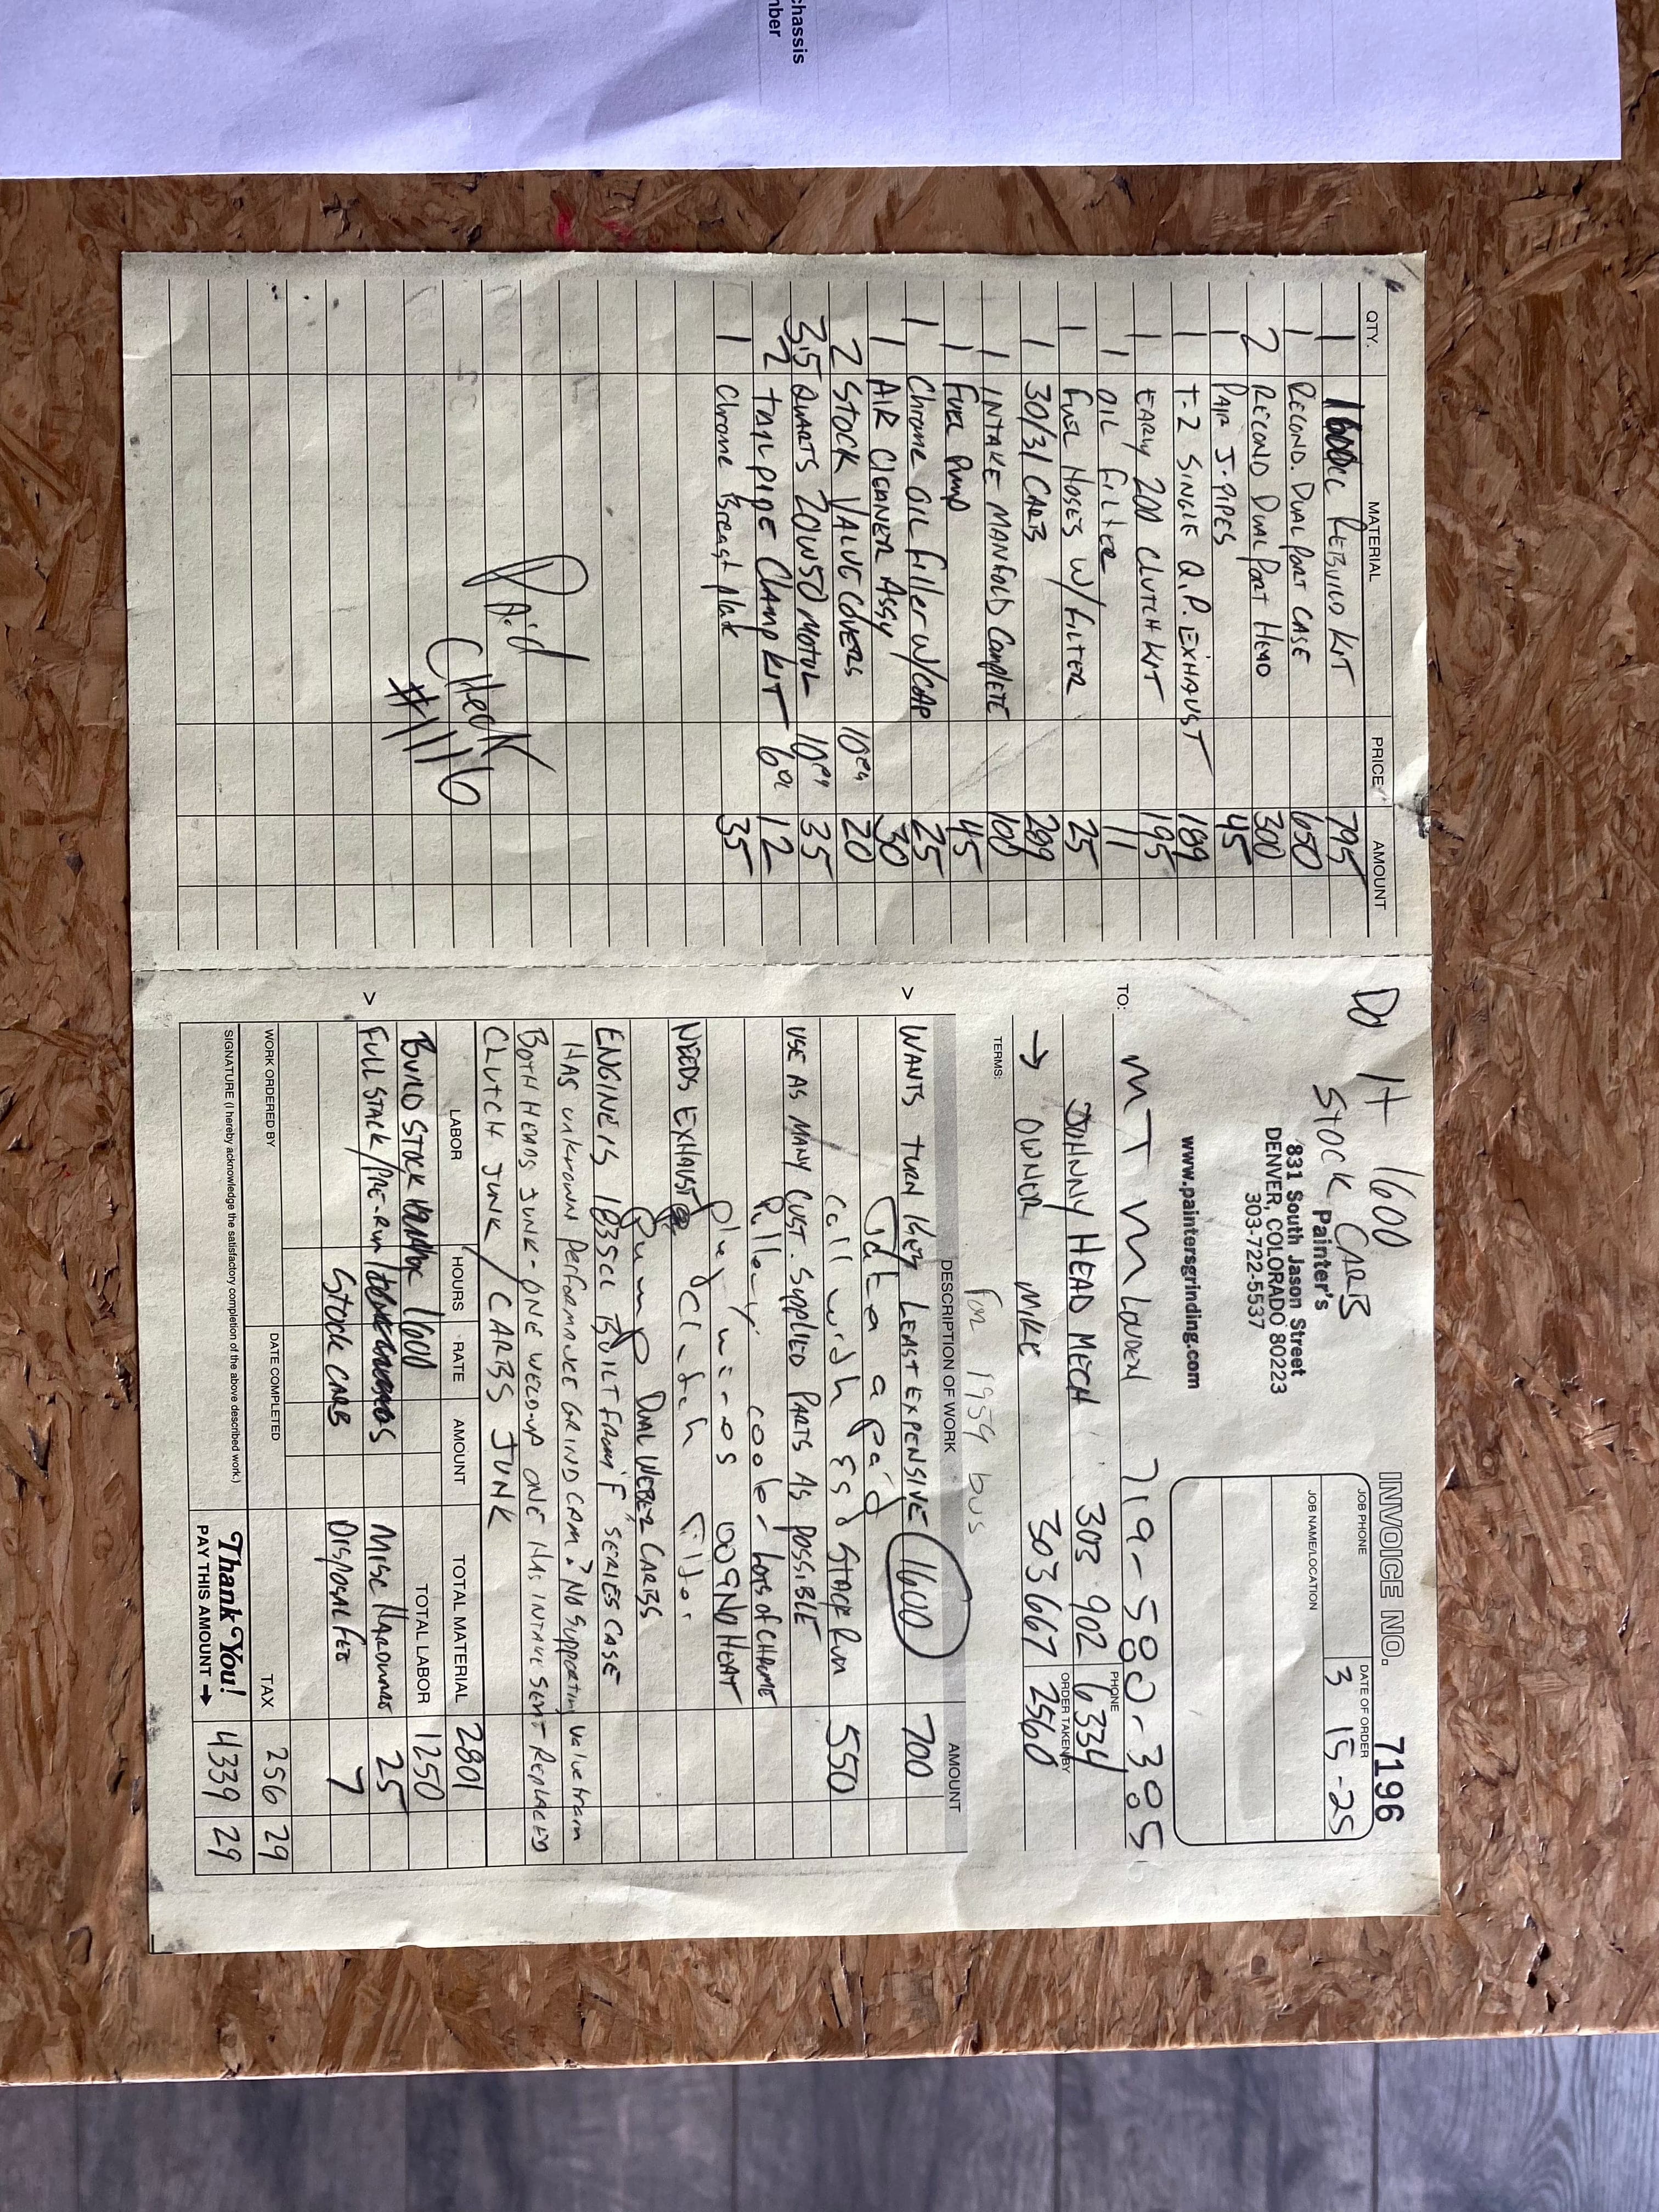 chassis
nber
QTY. MATERIAL PRICE AMOUNT
1 1600cc REBUILD KIT 795
1 RECOND. DUAL PORT CASE 650
2 RECOND DUAL PORT HEAD 300
1 PAIR J-PIPES 45
1 T-2 SINGLE Q.P. EXHAUST 189
1 EARLY 200 CLUTCH KIT 195
1 OIL FILTER 11
1 FUEL HOSES W/FILTER 25
1 30/31 CARB 289
1 INTAKE MANIFOLD COMPLETE 100
1 FUEL PUMP 45
1 Chrome OIL FILLER W/CAP 25
1 AIR CLEANER ASSY 30
2 STOCK VALVE COVERS 10 ea 20
3.5 QUARTS 20W50 MOTUL 10 ea 35
2 TAIL PIPE CLAMP KIT 6 ea 12
1 Chrome Breast plate 35
Paid
CHECK
#1116
Do It 1600
STOCK CARB
Painter's
831 South Jason Street
DENVER, COLORADO 80223
303-722-5537
www.paintersgrinding.com
INVOICE NO. 7196
JOB PHONE DATE OF ORDER
3 15-25
JOB NAME/LOCATION
TO: MTM 719-580-3805
PHONE
JOHNNY HEAD MECH 303 902 6334
ORDER TAKEN BY
→ OWNER MIKE 303 667 2560
TERMS: For 1959 bus
DESCRIPTION OF WORK AMOUNT
> WANTS TURN KEY LEAST EXPENSIVE 1600 700
call with STACK RUN 550
USE AS MANY CUST. SUPPLIED PARTS AS POSSIBLE
Pulley cooler LOTS OF CHROME
Play minos 009 NO HEAT
NEEDS EXHAUST clutch Filter
Pump DUAL WEBER CARBS
ENGINE IS 1835cc BUILT FROM "F" SERIES CASE
HAS unknown performance GRIND CAM? NO Supporting valvetrain
BOTH HEADS JUNK - ONE WELD-UP ONE HAS INTAKE SEAT REPLACED
CLUTCH JUNK / CARBS JUNK
LABOR HOURS RATE AMOUNT TOTAL MATERIAL 2801
BUILD STOCK 1600 TOTAL LABOR 1250
> FULL STACK/PRE-RUN MISC HARDWARE 25
STOCK CARB DISPOSAL FEE 7
WORK ORDERED BY DATE COMPLETED TAX 256 29
SIGNATURE (I hereby acknowledge the satisfactory completion of the above described work.)
Thank You!
PAY THIS AMOUNT → 4339 29